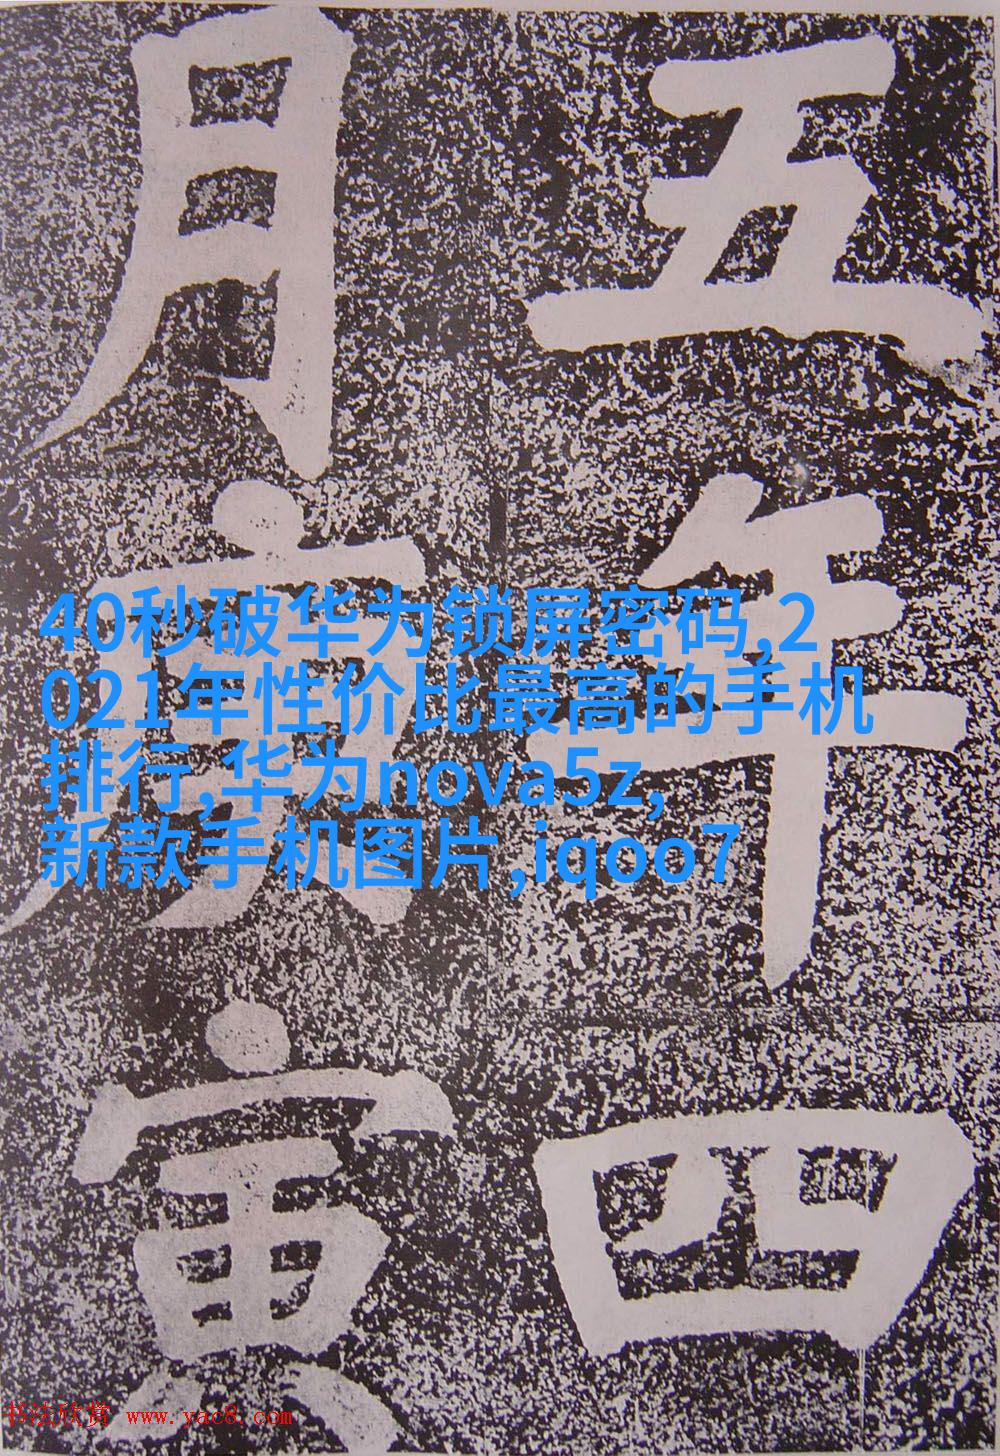 五年四
月庚寅
40秒破华为锁屏密码,2
021年性价比最高的手机
排行,华为nova5z,
新款手机图片,iqoo7
书法欣赏 www.yac8.com